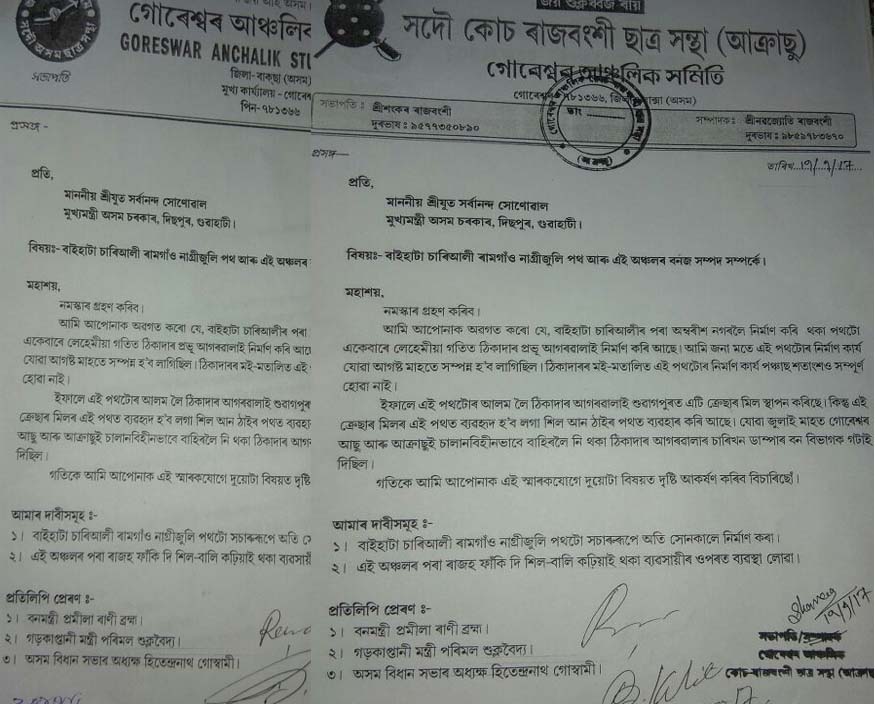 গোৰেশ্বৰ আঞ্চলিক
GORESWAR ANCHALIK STU
জিলা-বাক্সা (অসম)
মুখ্য কাৰ্যালয় - গোৰেশ
পিন-৭৮১৩৬৬
সভাপতি
প্ৰসঙ্গ -
প্ৰতি,
মাননীয় শ্ৰীযুত সৰ্বানন্দ সোণোৱাল
মুখ্যমন্ত্ৰী অসম চৰকাৰ, দিছপুৰ, গুৱাহাটী।
বিষয়ঃ- বাইহাটা চাৰিআলী ৰামগাঁও নাগ্ৰীজুলি পথ আৰু এই অঞ্চলৰ
মহাশয়,
নমস্কাৰ গ্ৰহণ কৰিব।
আমি আপোনাক অৱগত কৰো যে, বাইহাটা চাৰিআলীৰ পৰা
একেবাৰে লেহেমীয়া গতিত ঠিকাদাৰ প্ৰভূ আগৰৱালাই নিৰ্মাণ কৰি আছে
যোৱা আগষ্ট মাহতে সম্পন্ন হ'ব লাগিছিল। ঠিকাদাৰৰ মই-মতালিত এই
হোৱা নাই।
ইফালে এই পথটোৰ আলম লৈ ঠিকাদাৰ আগৰৱালাই গুৱাগপুৰ
ক্ৰেছাৰ মিলৰ এই পথত ব্যৱহাৰ হ'ব লগা শিল আন ঠাইৰ পথত ব্যৱহা
আছু আৰু আক্ৰাছুই চালানবিহীনভাবে বাহিৰলৈ নি থকা ঠিকাদাৰ আগ
দিছিল।
গতিকে আমি আপোনাক এই স্মাৰকযোগে দুয়োটা বিষয়ত দৃষ্টি
আমাৰ দাবীসমূহ ঃ-
১। বাইহাটা চাৰিআলী ৰামগাঁও নাগ্ৰীজুলি পথটো সচাৰুৰূপে অতি সো
২। এই অঞ্চলৰ পৰা ৰাজহ ফাঁকি দি শিল-বালি কঢ়িয়াই থকা ব্যৱসায়ী
প্ৰতিলিপি প্ৰেৰণ ঃ-
১। বনমন্ত্ৰী প্ৰমীলা ৰাণী ব্ৰহ্ম।
২। গড়কাপ্তানী মন্ত্ৰী পৰিমল শুক্লবৈদ্য।
৩। অসম বিধান সভাৰ অধ্যক্ষ হিতেন্দ্ৰনাথ গোস্বামী।
সদৌ কোচ ৰাজবংশী ছাত্ৰ সন্থা (আক্ৰাছু)
গোৰেশ্বৰ আঞ্চলিক সমিতি
গোৰেশ্বৰ-৭৮১৩৬৬, জিলা-বাক্সা (অসম)
সভাপতি ঃ শ্ৰীশংকৰ ৰাজবংশী
দূৰভাষ ঃ ৯৫৭৭৩৫০৮৯০
সম্পাদক ঃ শ্ৰীনৱজ্যোতি ৰাজবংশী
দূৰভাষ ঃ ৯৮৫৯৭৮৩৬৭০
প্ৰসঙ্গ—
তাৰিখ...19/9/17...
প্ৰতি,
মাননীয় শ্ৰীযুত সৰ্বানন্দ সোণোৱাল
মুখ্যমন্ত্ৰী অসম চৰকাৰ, দিছপুৰ, গুৱাহাটী।
বিষয়ঃ- বাইহাটা চাৰিআলী ৰামগাঁও নাগ্ৰীজুলি পথ আৰু এই অঞ্চলৰ বনজ সম্পদ সম্পৰ্কে।
মহাশয়,
নমস্কাৰ গ্ৰহণ কৰিব।
আমি আপোনাক অৱগত কৰো যে, বাইহাটা চাৰিআলীৰ পৰা অম্বৰীশ নগৰলৈ নিৰ্মাণ কৰি থকা পথটো
একেবাৰে লেহেমীয়া গতিত ঠিকাদাৰ প্ৰভূ আগৰৱালাই নিৰ্মাণ কৰি আছে। আমি জনা মতে এই পথটোৰ নিৰ্মাণ কাৰ্য
যোৱা আগষ্ট মাহতে সম্পন্ন হ'ব লাগিছিল। ঠিকাদাৰৰ মই-মতালিত এই পথটোৰ নিৰ্মাণ কাৰ্য পঞ্চাছ শতাংশও সম্পূৰ্ণ
হোৱা নাই।
ইফালে এই পথটোৰ আলম লৈ ঠিকাদাৰ আগৰৱালাই গুৱাগপুৰত এটি ক্ৰেছাৰ মিল স্থাপন কৰিছে। কিন্তু এই
ক্ৰেছাৰ মিলৰ এই পথত ব্যৱহাৰ হ'ব লগা শিল আন ঠাইৰ পথত ব্যৱহাৰ কৰি আছে। যোৱা জুলাই মাহত গোৰেশ্বৰ
আছু আৰু আক্ৰাছুই চালানবিহীনভাবে বাহিৰলৈ নি থকা ঠিকাদাৰ আগৰৱালাৰ চাৰিখন ডাম্পাৰ বন বিভাগক গটাই
দিছিল।
গতিকে আমি আপোনাক এই স্মাৰকযোগে দুয়োটা বিষয়ত দৃষ্টি আকৰ্ষণ কৰিব বিচাৰিছোঁ।
আমাৰ দাবীসমূহ ঃ-
১। বাইহাটা চাৰিআলী ৰামগাঁও নাগ্ৰীজুলি পথটো সচাৰুৰূপে অতি সোনকালে নিৰ্মাণ কৰা।
২। এই অঞ্চলৰ পৰা ৰাজহ ফাঁকি দি শিল-বালি কঢ়িয়াই থকা ব্যৱসায়ীৰ ওপৰত ব্যৱস্থা লোৱা।
প্ৰতিলিপি প্ৰেৰণ ঃ-
১। বনমন্ত্ৰী প্ৰমীলা ৰাণী ব্ৰহ্ম।
২। গড়কাপ্তানী মন্ত্ৰী পৰিমল শুক্লবৈদ্য।
৩। অসম বিধান সভাৰ অধ্যক্ষ হিতেন্দ্ৰনাথ গোস্বামী।
19/9/17
সভাপতি/সম্পাদক
গোৰেশ্বৰ আঞ্চলিক
কোচ-ৰাজবংশী ছাত্ৰ সন্থা (আক্ৰাছু